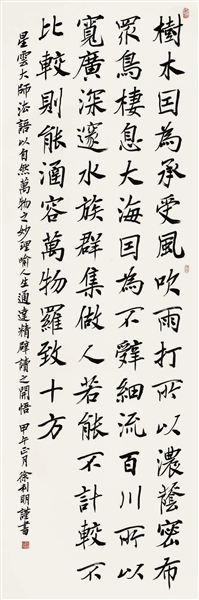 樹木因為承受風吹雨打所以濃蔭密布
眾鳥棲息大海因為不辭細流百川所以
寬廣深邃水族群集做人若能不計較不
比較則能涵容萬物羅致十方
星雲大師法語以自然萬物之妙理喻人生通達精闢讀之開悟 甲午正月徐利明謹書